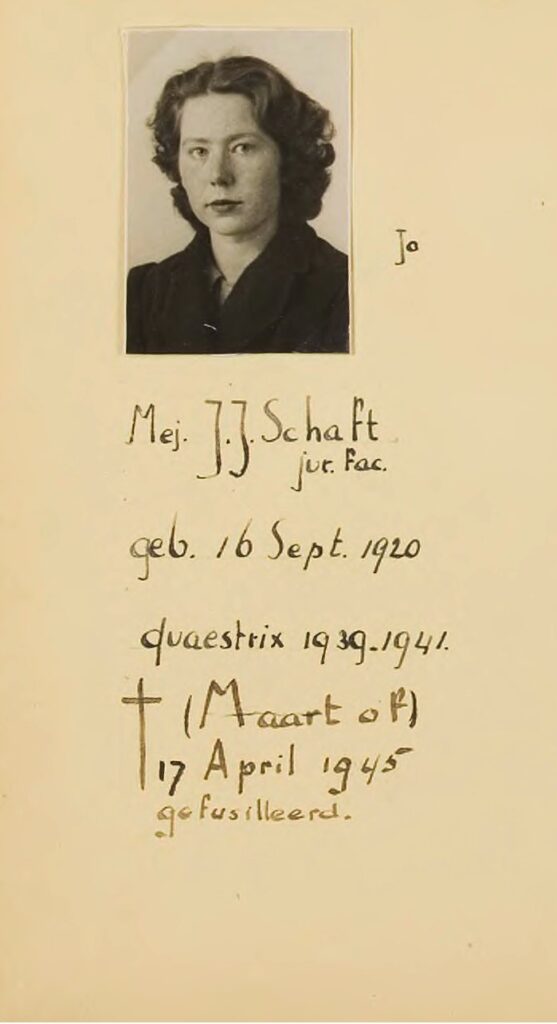 Jo
Mej. J.J. Schaft
jur. Fac.
geb. 16 Sept. 1920
quaestrix 1939-1941.
† (Maart of)
17 April 1945
gefusilleerd.